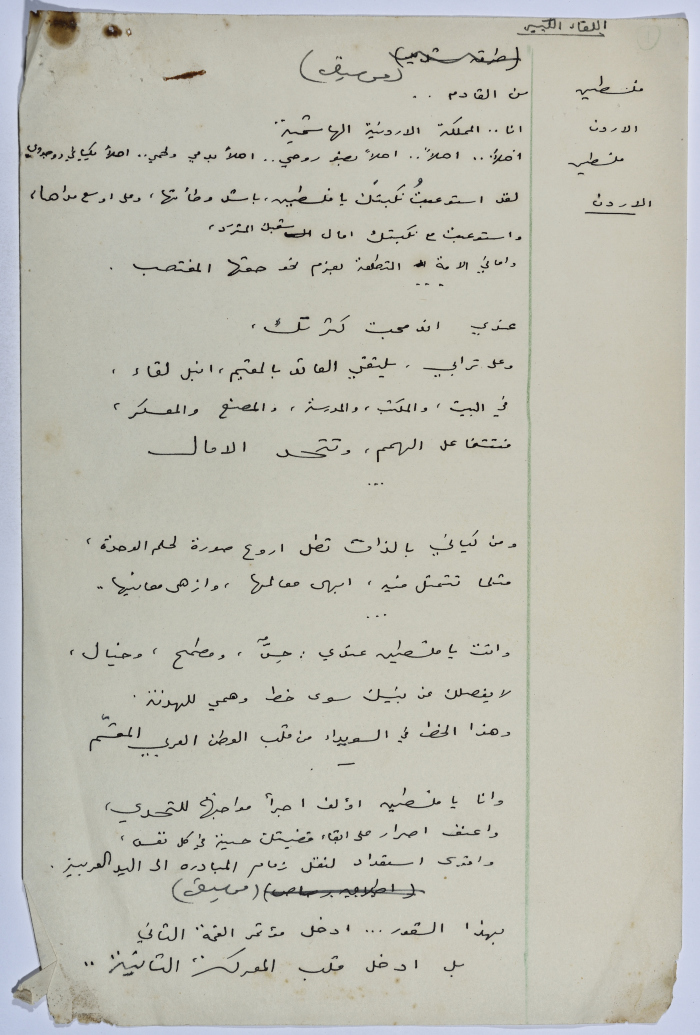 اللقاء الكبير
(موسيقى)
فلسطين من القادم ..
الاردن انا .. المملكة الاردنية الهاشمية.
فلسطين اهلاً .. اهلاً .. اهلاً بصنو روحي .. اهلاً بدمي ولحمي .. اهلاً بكياني ووجودي
الاردن لقد استوعبتُ نكبتَك يا فلسطين، بأشد وطأتها، وعلى اوسع مداها،
واستوعبت مع نكبتك امال المستقبل المشرق،
واماني الامة المتطلعة بعزم نحو حقها المغتصب .
عندي اندمجت كثرتك،
وعلى ترابي، يلتقي العائد بالمقيم، انبل لقاء،
في البيت، والمكتب، والمدرسة، والمصنع والمعسكر،
فتتفاعل الهمم، وتتحد الامال
...
ومن كياني بالذات تطل اروع صورة لحلم الوحدة،
مثلما تتمثل فيه، ابهى معالمها، وازهى معانيها ..
...
وانت يا فلسطين عندي : حِسٌّ، ومطمح، وخيال،
لا يفصلك عن بنيك سوى خط وهمي للهدنة.
وهذا الخط في السويداء من قلب الوطن العربي المقسّم
وانا يا فلسطين اؤلف اجرأ مواجهة للتحدي،
واعنف اصرار على ابقاء قضيتك حية في كل نفس،
واقوى استعداد لنقل زمام المبادره الى اليد العربية .
(موسيقى)
بهذا الشعور ... ادخل مؤتمر القمة الثاني
بل ادخل قلب المعركة الثانية ..